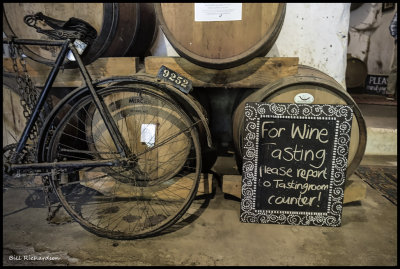 9252
PLEASE
For Wine
Tasting
please report
to Tastingroom
counter!
Bill Richardson